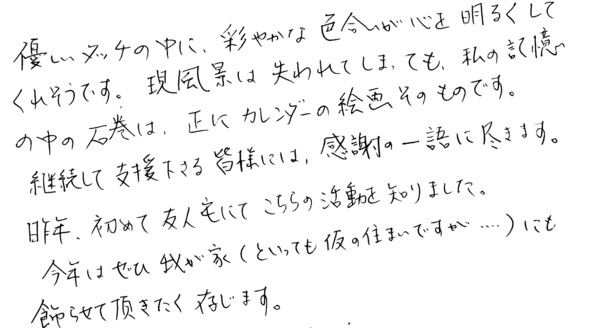 優しいタッチの中に、彩やかな色合いが心を明るくして
くれそうです。現風景は失われてしまっても、私の記憶
の中の石巻は、正にカレンダーの絵画そのものです。
継続して支援下さる皆様には、感謝の一語に尽きます。
昨年、初めて友人宅にてこちらの活動を知りました。
今年はぜひ我が家(といっても仮の住まいですが‥‥)にも
飾らせて頂きたく存じます。